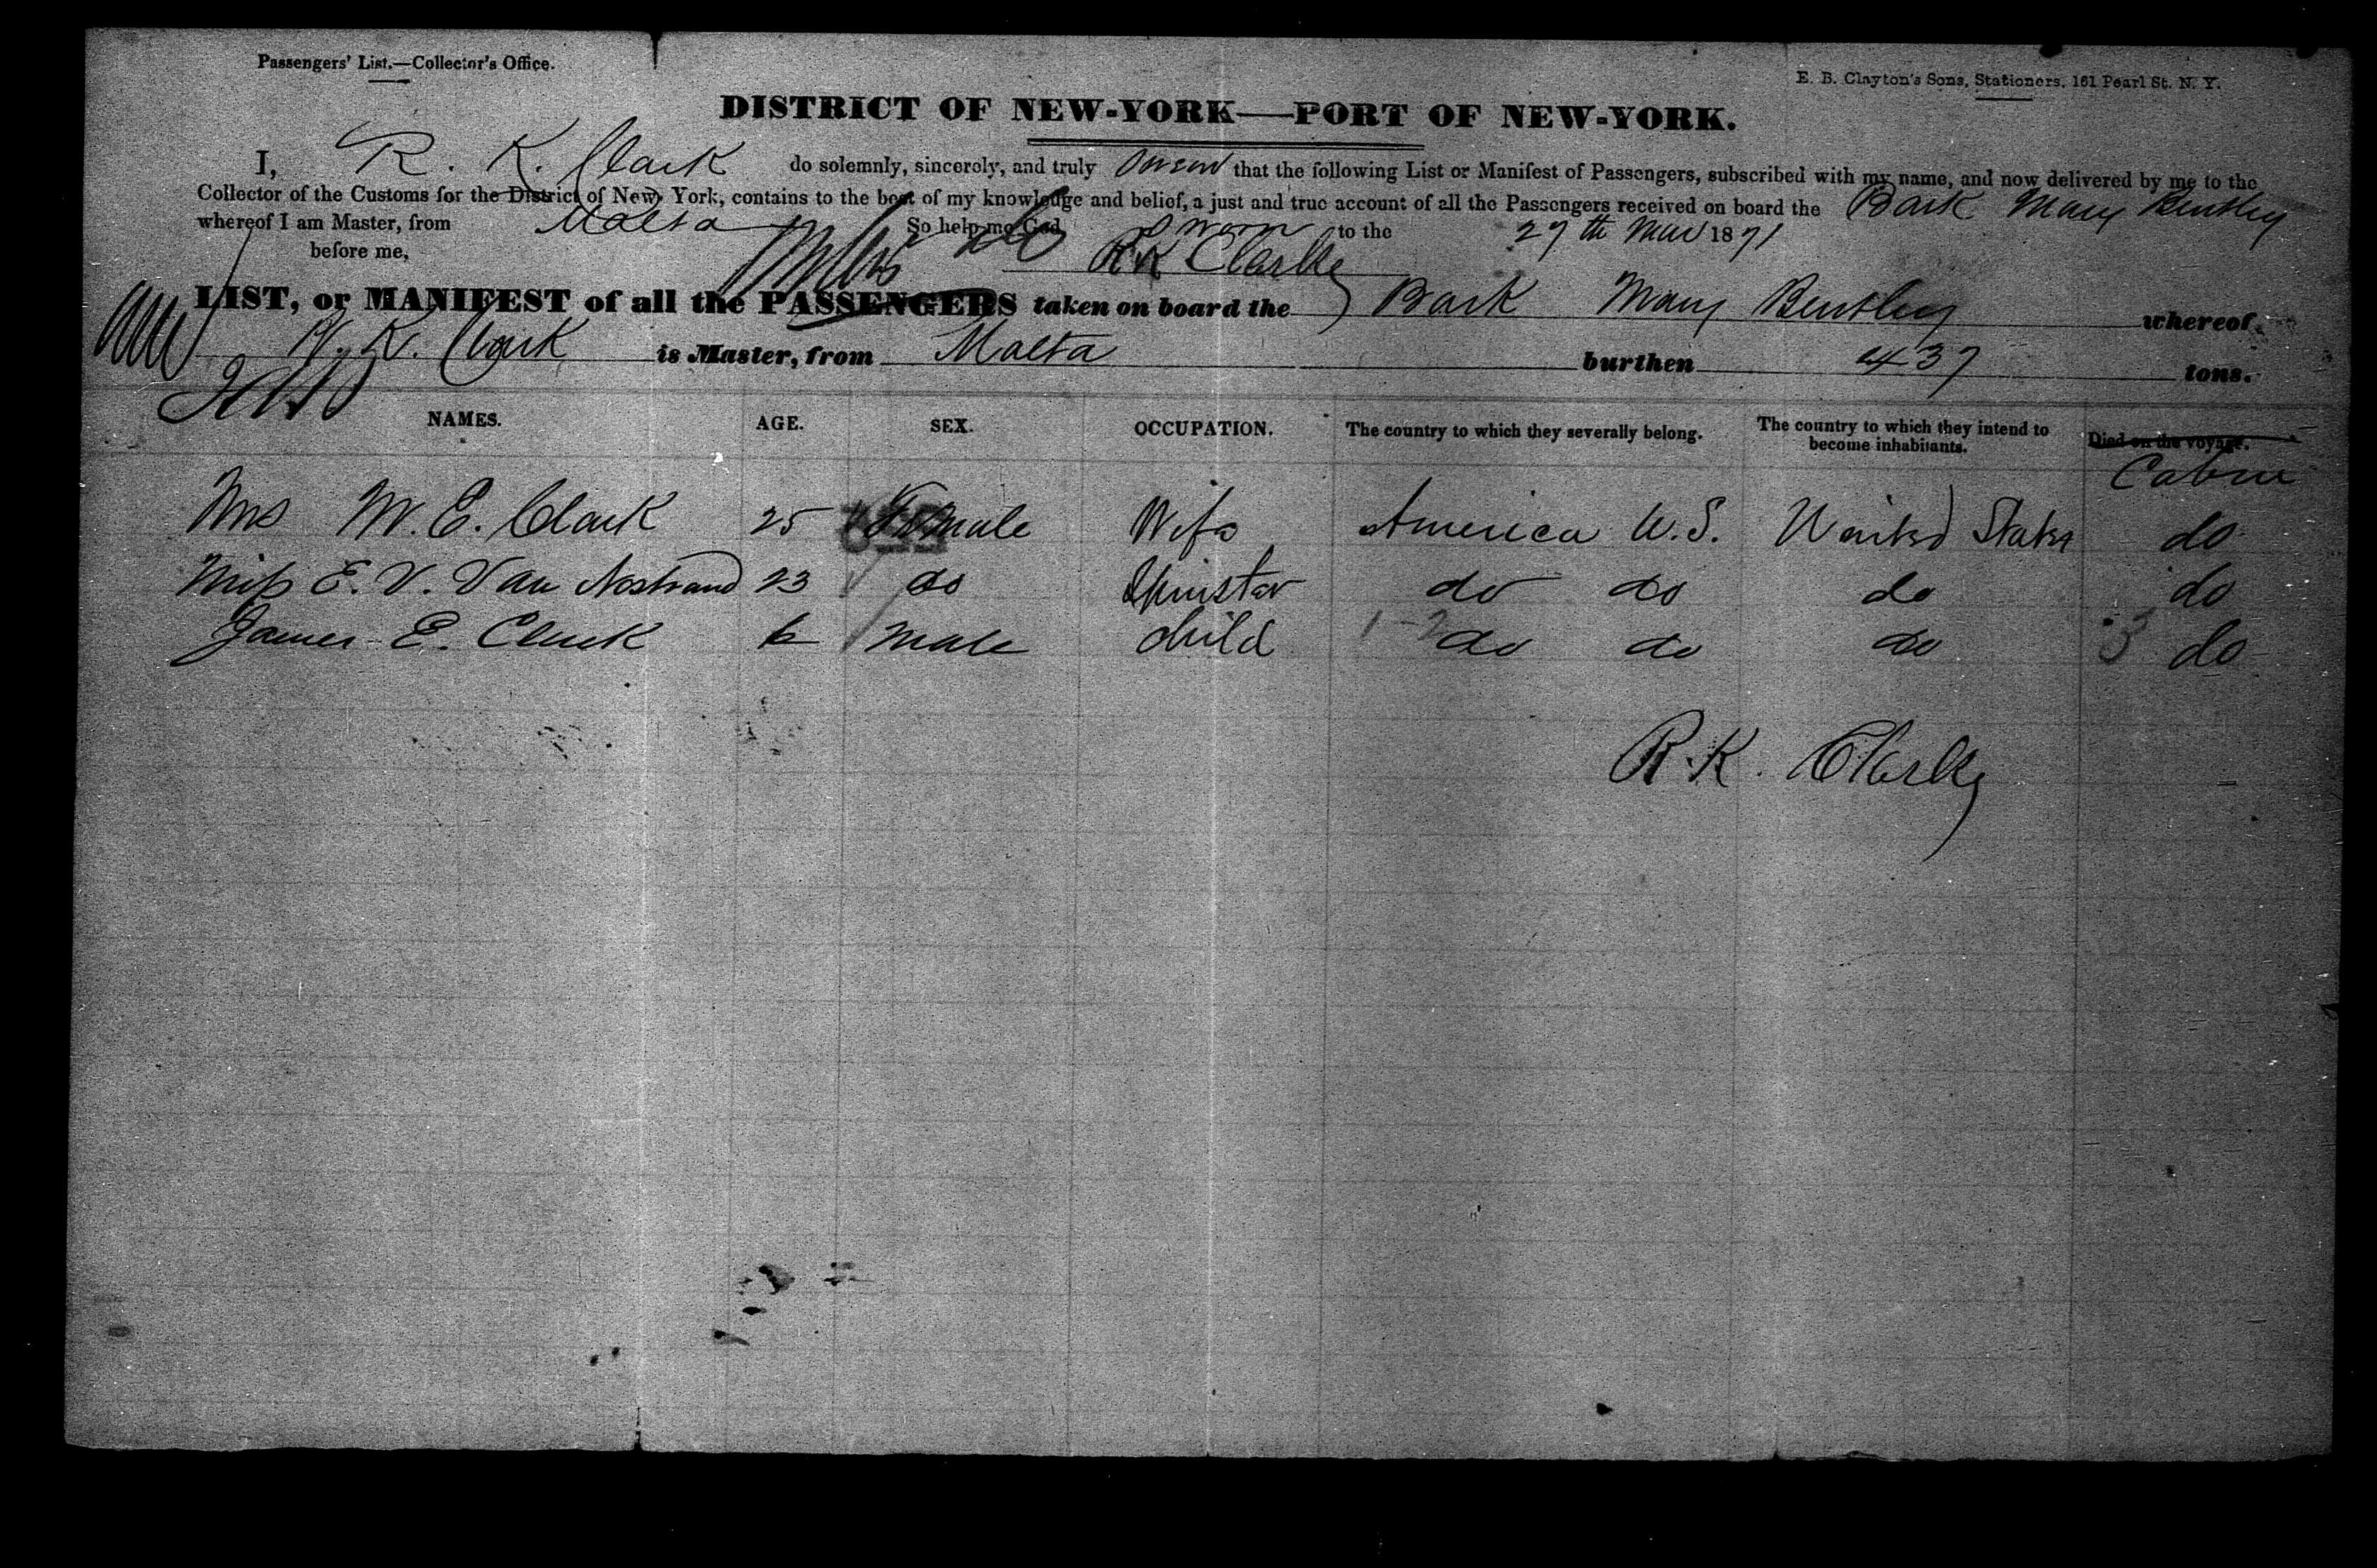 Passengers' List.—Collector's Office.
E. B. Clayton's Sons, Stationers, 161 Pearl St. N. Y.
DISTRICT OF NEW-YORK—PORT OF NEW-YORK.
I, R. K. Clark do solemnly, sincerely, and truly swear that the following List or Manifest of Passengers, subscribed with my name, and now delivered by me to the
Collector of the Customs for the District of New York, contains to the best of my knowledge and belief, a just and true account of all the Passengers received on board the Bark Mary Bentley
whereof I am Master, from Malta So help me God. Sworn to the 27th Mar 1871
before me, R K Clarke
LIST, or MANIFEST of all the PASSENGERS taken on board the Bark Mary Bentley whereof
R. K. Clark is Master, from Malta burthen 437 tons.
NAMES. AGE. SEX. OCCUPATION. The country to which they severally belong. The country to which they intend to become inhabitants. Died on the voyage.
Cabin
Mrs M. E. Clark 25 Female Wife America U.S. United States do
Miss E. V. Van Nostrand 23 do Spinster do do do do
James E. Clark 6 male child do do do do
R. K. Clarke